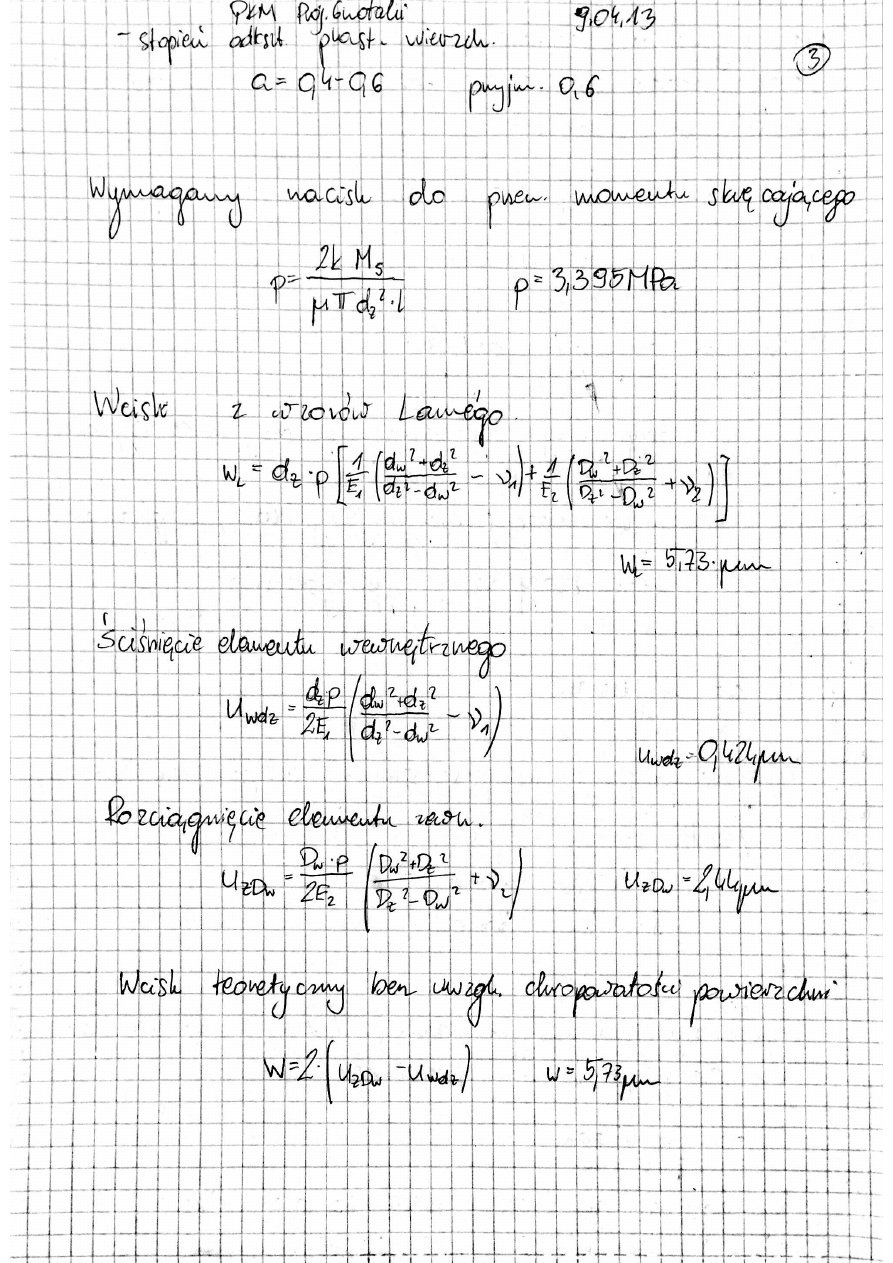 PKM Proj. Gwotalii 9.04.13
- stopień odkszt plast. wierzch.
3
a = 0,4-0,6 przyjm. 0,6
Wymagany nacisk do przen. momentu skręcającego
p = \frac{2k M_s}{μ π d_z² · l} p = 3,395 MPa
Wcisk z wzorów Lamégo.
w_L = d_z · p [ \frac{1}{E_1} ( \frac{d_w² + d_z²}{d_z² - d_w²} - ν_1 ) + \frac{1}{E_2} ( \frac{D_w² + D_z²}{D_z² - D_w²} + ν_2 ) ]
w_L = 5,73 · μm
Ściśnięcie elementu wewnętrznego
u_{wdz} = \frac{d_z p}{2E_1} ( \frac{d_w² + d_z²}{d_z² - d_w²} - ν_1 )
u_{wdz} = 0,424 μm
Rozciągnięcie elementu zewn.
u_{zDw} = \frac{D_w · p}{2E_2} ( \frac{D_w² + D_z²}{D_z² - D_w²} + ν_2 ) u_{zDw} = 2,44 μm
Wcisk teoretyczny bez uwzgl. chropowatości powierzchni
W = 2 · ( u_{zDw} - u_{wdz} ) w = 5,73 μm